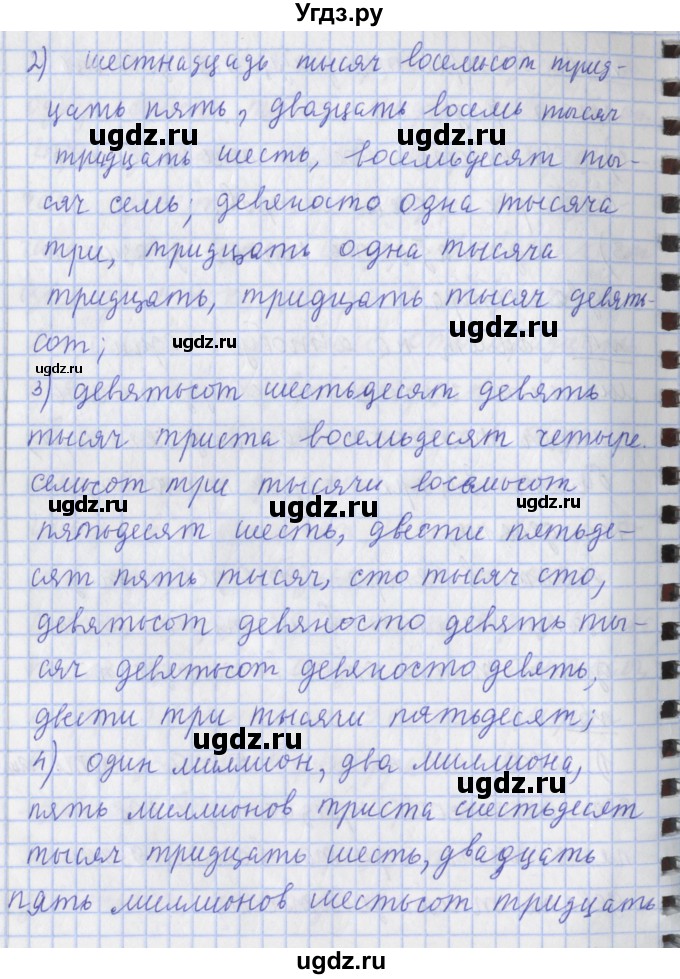 Угдз.ру
2) шестнадцадь тысяч восемьсот трид-
цать пять, двадцать восемь тысяч
ugdz.ru ugdz.ru
тридцать шесть, восемьдесят ты-
сяч семь; девяносто одна тысяча
три, тридцать одна тысяча
тридцать, тридцать тысяч девять-
ugdz.ru
сот;
ugdz.ru
ugdz.ru
3) девятьсот шестьдесят девять
тысяч триста восемьдесят четыре.
семьсот три тысячи восемьсот
ugdz.ru ugdz.ru ugdz.ru
пятьдесят шесть, двести пятьде-
сят пять тысяч, сто тысяч сто,
девятьсот девяносто девять ты-
сяч девятьсот девяносто девять,
двести три тысячи пятьдесят;
ugdz.ru
4) один миллион, два миллиона,
ugdz.ru
пять миллионов триста шестьдесят
тысяч тридцать шесть, двадцать
пять миллионов шестьсот тридцать
ugdz.ru